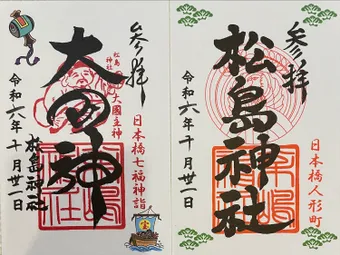 参拝
松島神社
大國主神
大国神
日本橋七福神詣
令和六年十月廿一日
松島神社
参拝
松島神社
日本橋人形町
令和六年十月廿一日